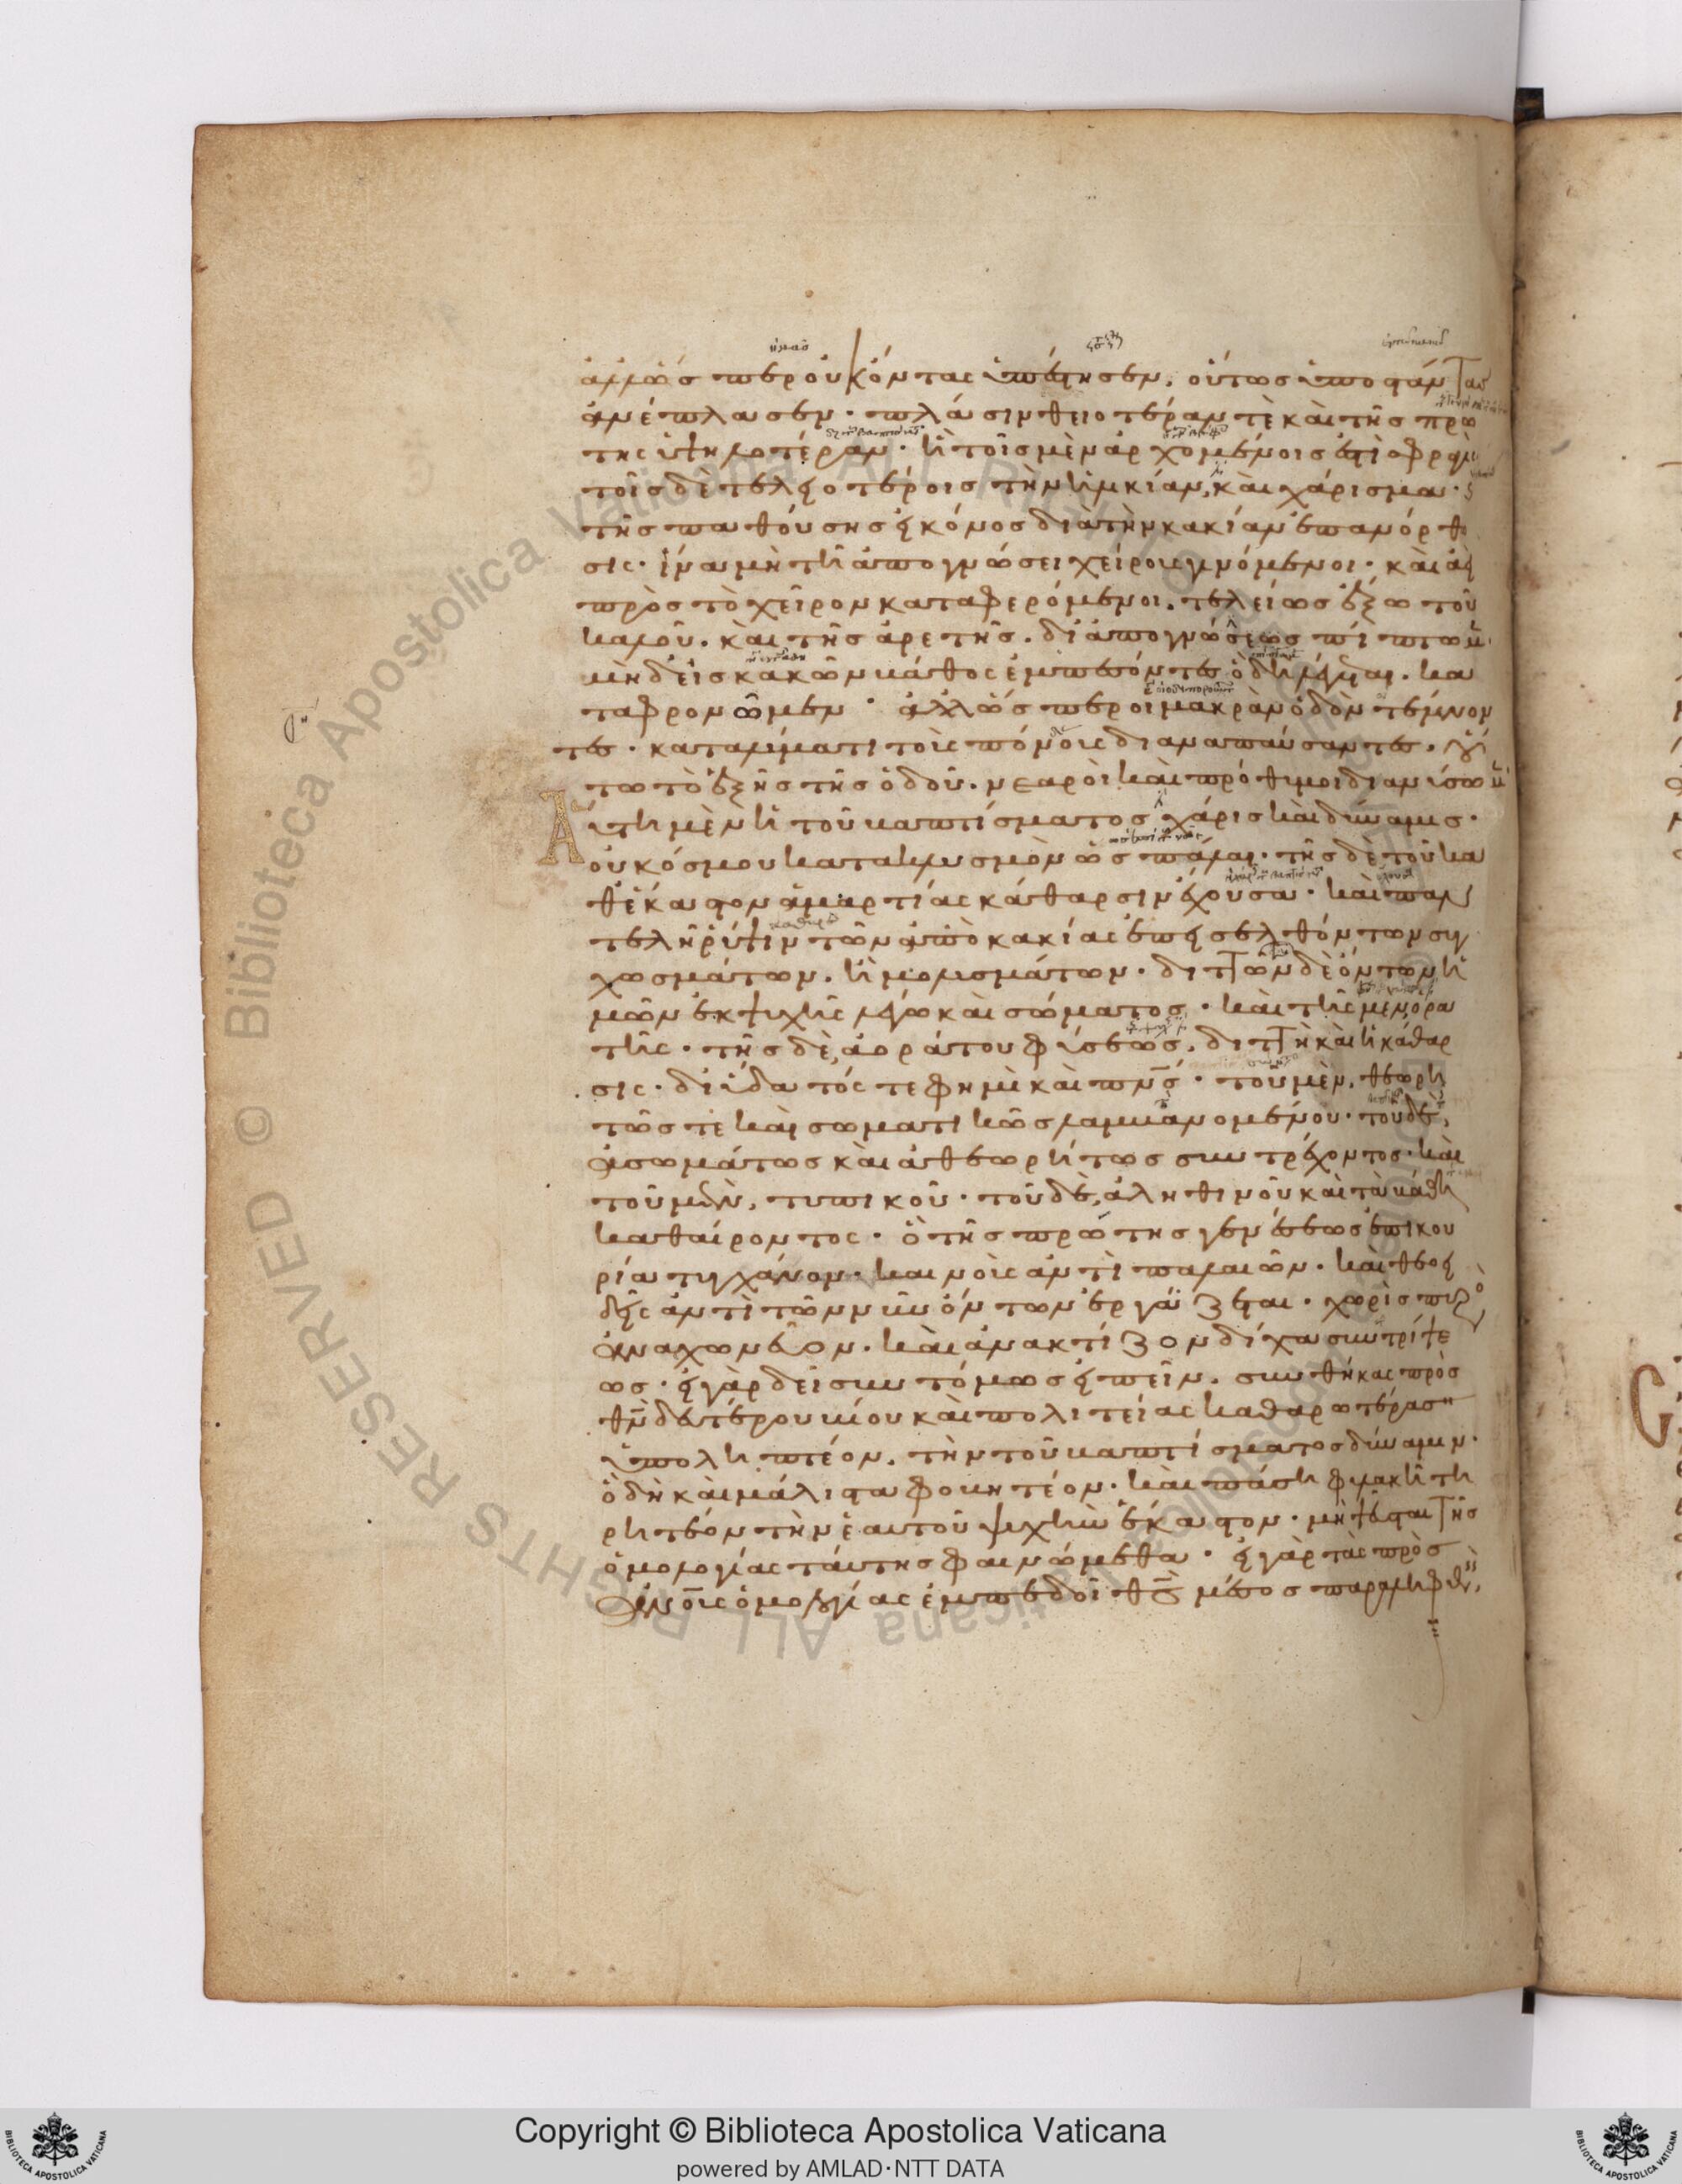 ἀλλ᾽ ὥσπερ οὐκ ὄντας ὑπέστησεν. οὕτως ὑποστάντας
ἀνέπλασεν· πλάσιν θειοτέραν τὲ καὶ τῆς πρώ
της ὑψηλοτέραν· ἣ τοῖς μὲν ἀρχομένοις ἐστὶ σφραγὶς
τοῖς δὲ τελεωτέροις τὴν ἡλικίαν, καὶ χάρισμα·
τῆς παθούσης εἰκόνος διὰ τὴν κακίαν ἐπανόρθω
σις· ἵνα μὴ τῆ ἀπογνώσει χείρους γινόμενοι· καὶ ἀεὶ
πρὸς τὸ χεῖρον καταφερόμενοι. τελείως ἔξω τοῦ
καλοῦ. καὶ τῆς ἀρετῆς. δι᾽ ἀπογνώσεως πίπτωμεν
μηδ᾽ εἰς κακῶν βάθος ἐμπεσόντες ὃ δὴ λέγεται. κα
ταφρονῶμεν· ἀλλ᾽ ὥσπερ οἱ μακρὰν ὁδὸν τέμνον
τες. καταλύματι τοῖς πόνοις διαναπαύσαντες. οὕ
τω τὸ ἑξῆς τῆς ὁδοῦ. νεαροὶ καὶ πρόθυμοι διανύσωμεν
Αὕτη μὲν ἡ τοῦ βαπτίσματος χάρις καὶ δύναμις.
οὐ κόσμου κατακλυσμὸν ὡς πάλαι. τῆς δὲ τοῦ κα
θ᾽ ἕκαστον ἁμαρτίας κάθαρσιν ἔχουσα. καὶ παν
τελῆ ῥύψιν τῶν ἀπὸ κακίας ἐπεισελθόντων συγ
χωσμάτων. ἢ μολυσμάτων. διττῶν δὲ ὄντων ἡ
μῶν ἐκ ψυχῆς λέγω καὶ σώματος. καὶ τῆς μὲν ὁρα
τῆς. τῆς δὲ, ἀοράτου φύσεως. διττὴ καὶ ἡ κάθαρ
σις. δι᾽ ὕδατός τε φημὶ καὶ πν̅ς̅. τοῦ μὲν, θεωρη
τῶς τε καὶ σωματικῶς λαμβανομένου. τοῦ δὲ,
ἀσωμάτως καὶ ἀθεωρήτως συντρέχοντος. καὶ
τοῦ μὲν, τυπικοῦ. τοῦ δὲ, ἀληθινοῦ καὶ τὰ βάθη
καθαίροντος. ὃ τῆς πρώτης γενέσεως ἐπικου
ρία τυγχάνον. καινοὺς ἀντὶ παλαιῶν. καὶ θεοει
δεῖς ἀντὶ τῶν νῦν ὄντων ἐργάζεται. χωρὶς πυρὸς
ἀναχωνεῦον. καὶ ἀνακτίζον δίχα συντρίψε
ως. εἰ γὰρ δεῖ συντόμως εἰπεῖν. συνθήκας πρὸς
θν̅ δευτέρου βίου καὶ πολιτείας καθαρωτέρας
ὑποληπτέον. τὴν τοῦ βαπτίσματος δύναμιν.
ὃ δὴ καὶ μάλιστα φοβητέον. καὶ πάση φυλακῆ τη
ρητέον τὴν ἑαυτοῦ ψυχὴν ἕκαστον. μὴ ψεῦσται τῆς
ὁμολογίας ταύτης φαινώμεθα. εἰ γὰρ τὰς πρὸς
ἀν̅ους ὁμολογίας ἐμπεδοῖ θς̅ μέσος παραληφθεὶς,